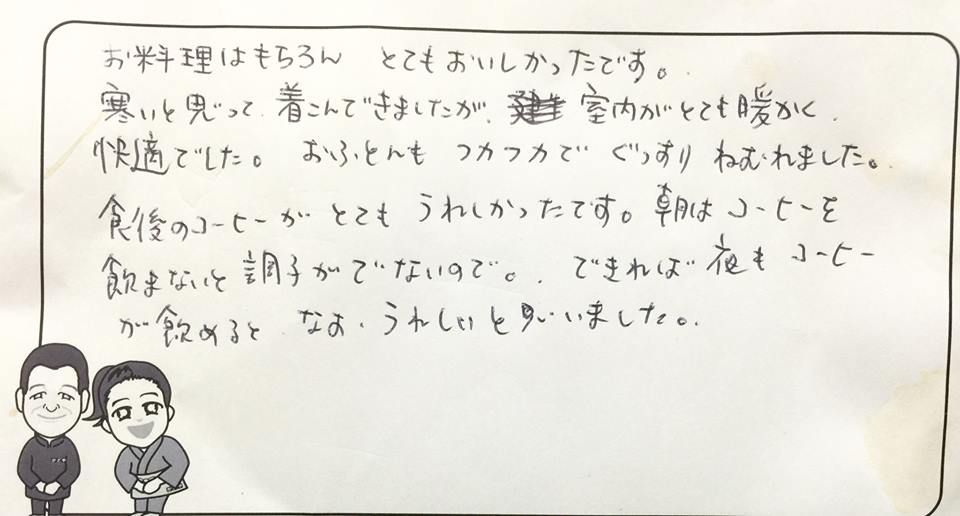 お料理はもちろん とてもおいしかったです。
寒いと思って、着こんできましたが、室内がとても暖かく
快適でした。 おふとんも フカフカで ぐっすり ねむれました。
食後のコーヒーが とても うれしかったです。朝はコーヒーを
飲まないと調子がでないので。 できれば夜もコーヒー
が飲めると なお、うれしいと思いました。